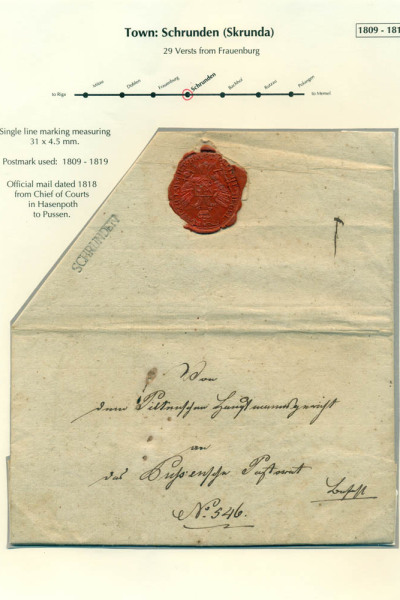 Town: Schrunden (Skrunda)
1809 - 181
29 Versts from Frauenburg
to Riga
Mitau
Doblen
Frauenburg
Schrunden
Polangen
Single line marking measuring
31 x 4.5 mm.
Postmark used: 1809 - 1819
Official mail dated 1818
from Chief of Courts
in Hasenpoth
to Pussen.
SCHRUNDEN
Von
dem Piltenschen Hauptmannsgericht
an
das Pussensche Pastorat
No. 546.